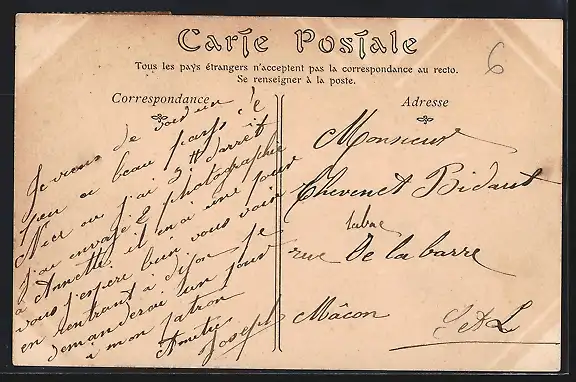 Carte Postale
Tous les pays étrangers n'acceptent pas la correspondance au recto.
Se renseigner à la poste.
6
Correspondance
Je viens de voir un
peu ce beau pays de
Nice ou j'ai 3 H d'arrêt
J'ai envoyé 2 photographie
a Annette il en a une pour
vous j'espere bien vous voir
en rentrant a Dijon je
demanderai un jour
a mon patron
Amitié
Joseph
Adresse
Monsieur
Chevenet Bidaut
tabac
rue De la barre
Mâcon
S et L